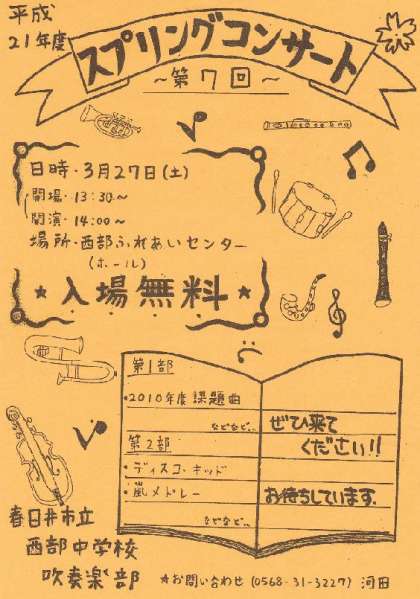 平成
21年度
スプリングコンサート
～第7回～
日時・3月27日(土)
開場・13:30～
開演・14:00～
場所・西部ふれあいセンター
(ホール)
★入場無料★
第1部
・2010年度課題曲
などなど…
第2部
・ディスコ・キッド
・嵐メドレー
などなど…
ぜひ来て
ください!!
お待ちしています。
春日井市立
西部中学校
吹奏楽部
☆お問い合わせ (0568-31-3227) 河田